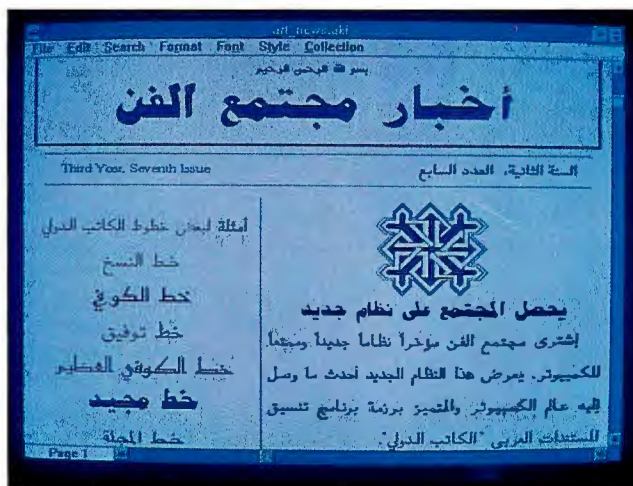 art_news.aki
File Edit Search Format Font Style Collection
بسم الله الرحمن الرحيم
أخبار مجتمع الفن
السنة الثانية، العدد السابع
Third Year, Seventh Issue
يحصل المجتمع على نظام جديد
إشترى مجتمع الفن مؤخراً نظاماً جديداً ومجتمعاً
للكمبيوتر. يعرض هذا النظام الجديد أحدث ما وصل
إليه عالم الكمبيوتر والمتميز برزمة برنامج تنسيق
المستندات العربي "الكاتب الدولي".
أمثلة لبعض خطوط الكاتب الدولي
خط النسخ
خط الكوفي
خط توفيق
خط الكوفي العظيم
خط مجيد
خط المجلة
Page 1